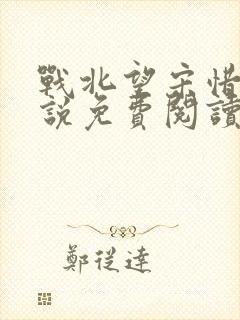 戰北望宋惜
說免費閱讀
鄭從達